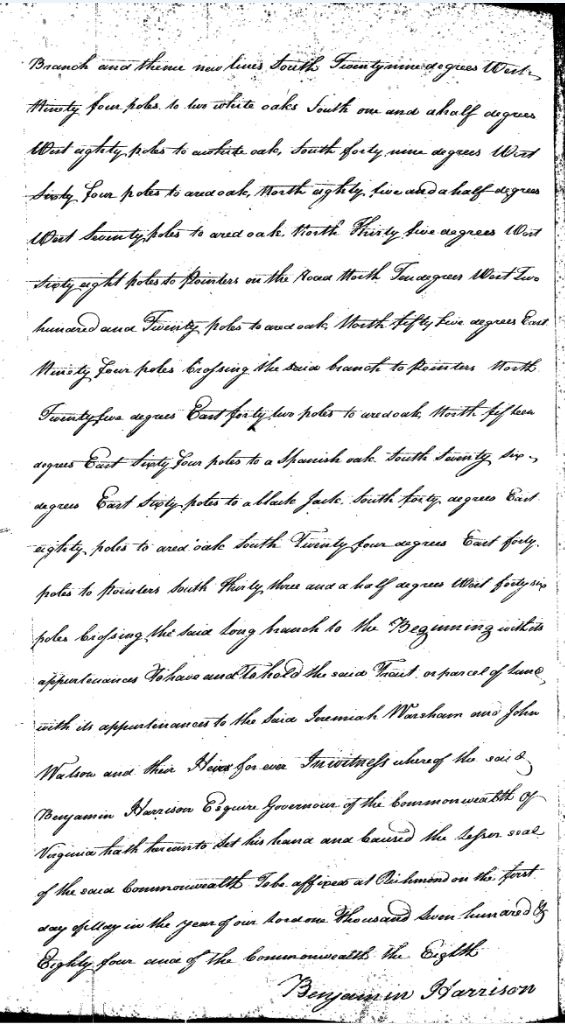 Branch and thence new lines South Twenty nine degrees West
Ninety four poles to two white oaks South one and a half degrees
West eighty poles to a white oak, South forty nine degrees West
Sixty four poles to a red oak, North eighty five and a half degrees
West Seventy poles to a red oak North Thirty five degrees West
Sixty eight poles to Pointers on the Road North Ten degrees West Two
hundred and Twenty poles to a red oak North fifty five degrees East
Ninety four poles Crossing the said branch to Pointers North
Twenty five degrees East forty two poles to a red oak North fifteen
degrees East Sixty four poles to a Spanish oak South Seventy six
degrees East Sixty poles to a black Jack South forty degrees East
eighty poles to a red oak South Twenty four degrees East forty
poles to Pointers South Thirty three and a half degrees West forty six
poles Crossing the said Long branch to the Beginning with its
appurtenances To have and To hold the said Tract or parcel of Land
with its appurtenances to the Said Jeremiah Warsham and John
Watson and their Heirs for ever In witness whereof the said
Benjamin Harrison Esquire Governour of the Commonwealth Of
Virginia hath hereunto Set his hand and Caused the Lesser seal
of the said Commonwealth To be affixed at Richmond on the first
day of May in the year of our Lord one Thousand Seven hundred &
Eighty four and of the Commonwealth the Eighth
Benjamin Harrison